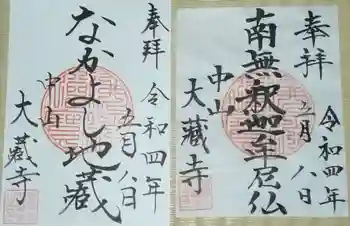 奉拝
令和四年
五月八日
なかよし地蔵
中山
大蔵寺
奉拝
令和四年
五月八日
南無釋迦牟尼仏
中山
大蔵寺